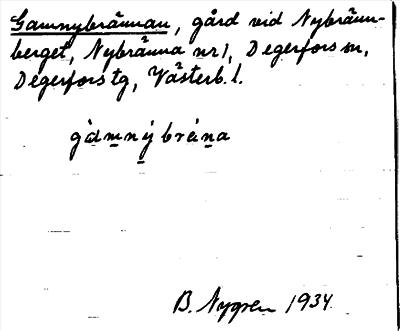 Gamnybrännan, gård vid Nybränn-
berget, Nybränna nr 1, Degerfors sn,
Degerfors tg, Västerb. l.
gàmnýbrána
B. Nygren 1934